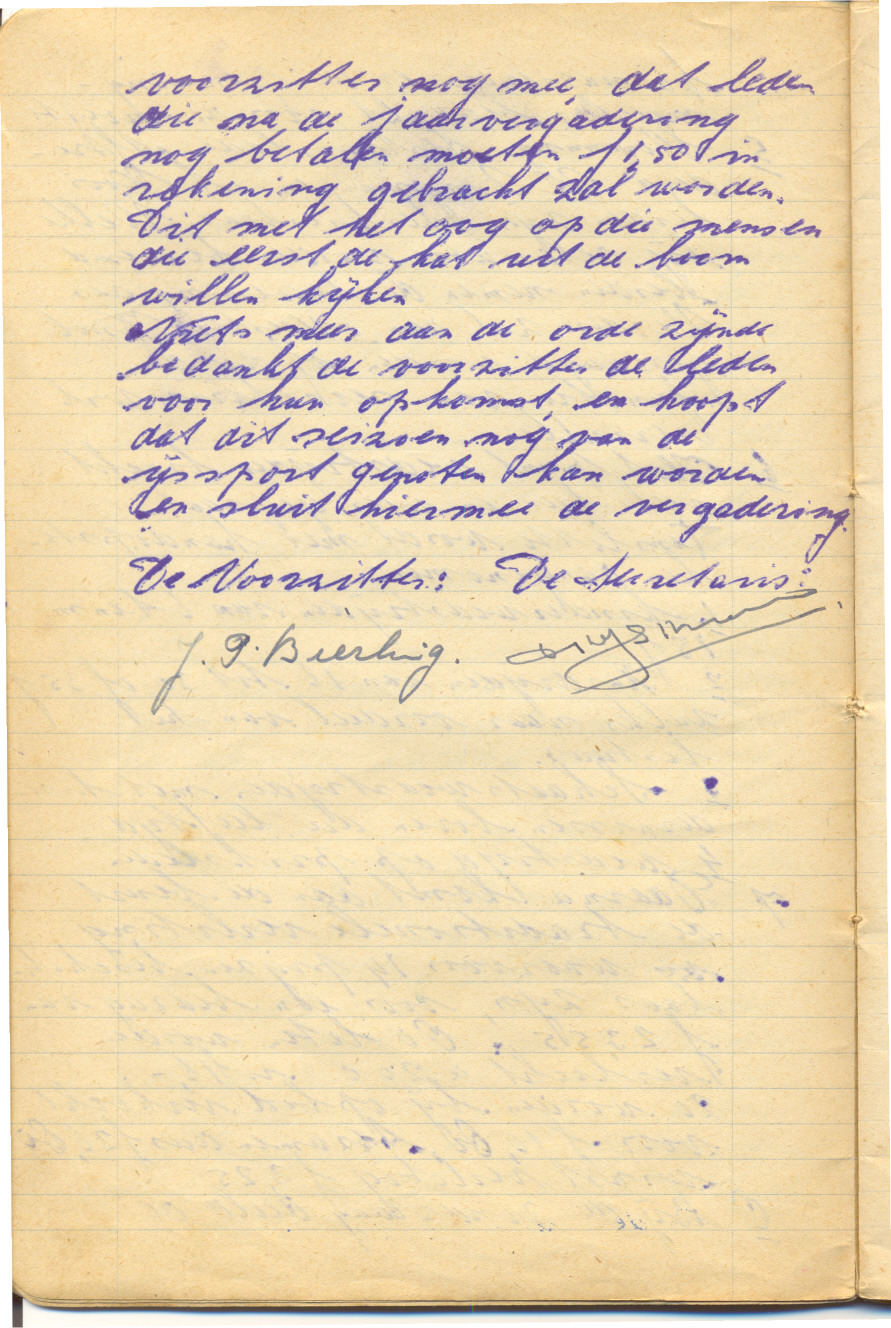 voorzitter nog mee, dat leden
die na de jaarvergadering
nog betalen moeten f 1,50 in
rekening gebracht zal worden.
Dit met het oog op die mensen
die eerst de kat uit de boom
willen kijken
Niets meer aan de orde zijnde
bedankt de voorzitter de leden
voor hun opkomst, en hoopt
dat dit seizoen nog van de
ijssport genoten kan worden
en sluit hiermee de vergadering.
De Voorzitter: De Secretaris:
J. P. Bierling.